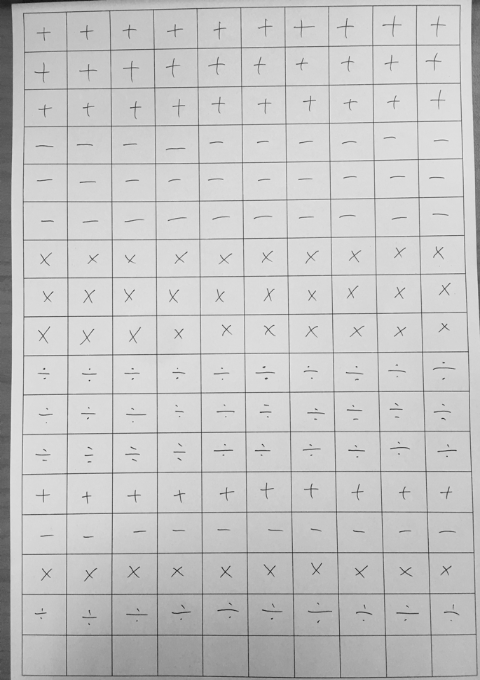 + + + + + + + + + +
+ + + + + + + + + +
+ + + + + + + + + +
− − − − − − − − − −
− − − − − − − − − −
− − − − − − − − − −
× × × × × × × × × ×
× × × × × × × × × ×
× × × × × × × × × ×
÷ ÷ ÷ ÷ ÷ ÷ ÷ ÷ ÷ ÷
÷ ÷ ÷ ÷ ÷ ÷ ÷ ÷ ÷ ÷
÷ ÷ ÷ ÷ ÷ ÷ ÷ ÷ ÷ ÷
+ + + + + + + + + +
− − − − − − − − − −
× × × × × × × × × ×
÷ ÷ ÷ ÷ ÷ ÷ ÷ ÷ ÷ ÷